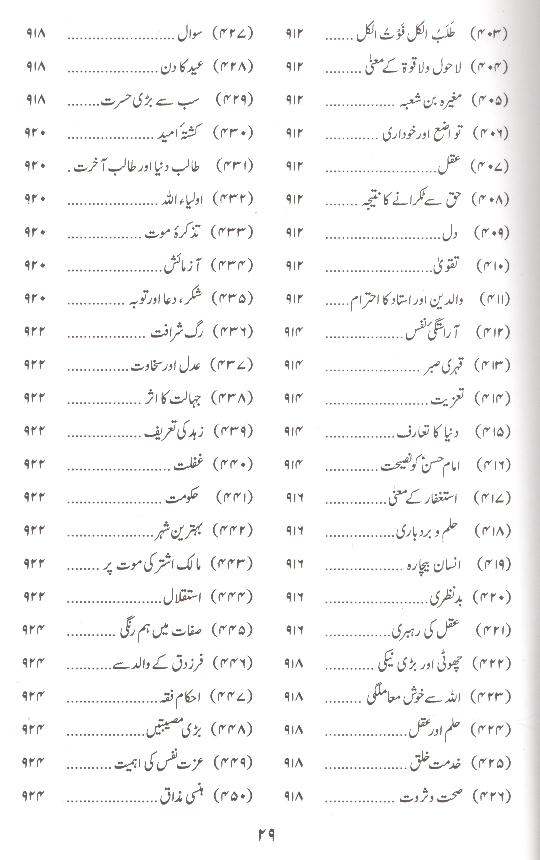 (۴۰۳) طَلَبُ الکل فَوْتُ الکل ........ ۹۱۲
(۴۰۴) لا حول ولا قوۃ کے معنٰی ......... ۹۱۲
(۴۰۵) مغیرہ بن شعبہ .............. ۹۱۲
(۴۰۶) تواضع اور خودداری ............. ۹۱۲
(۴۰۷) عقل..................... ۹۱۲
(۴۰۸) حق سے ٹکرانے کا نتیجہ ........ ۹۱۲
(۴۰۹) دل..................... ۹۱۲
(۴۱۰) تقویٰ..................... ۹۱۲
(۴۱۱) والدین اور استاد کا احترام...... ۹۱۲
(۴۱۲) آراستگیٔ نفس................ ۹۱۴
(۴۱۳) قہری صبر .................. ۹۱۴
(۴۱۴) تعزیت.................... ۹۱۴
(۴۱۵) دنیا کا تعارف............... ۹۱۴
(۴۱۶) امام حسنؑ کو نصیحت............ ۹۱۴
(۴۱۷) استغفار کے معنٰی............. ۹۱۶
(۴۱۸) حلم و بردباری............... ۹۱۶
(۴۱۹) انسان بیچارہ ............... ۹۱۶
(۴۲۰) بدنظری................... ۹۱۶
(۴۲۱) عقل کی رہبری............... ۹۱۶
(۴۲۲) چھوٹی اور بڑی نیکی ............ ۹۱۸
(۴۲۳) اللہ سے خوش معاملگی ......... ۹۱۸
(۴۲۴) حلم اور عقل................. ۹۱۸
(۴۲۵) خدمت خلق ................ ۹۱۸
(۴۲۶) صحت و ثروت ............... ۹۱۸
(۴۲۷) سوال .................... ۹۱۸
(۴۲۸) عید کا دن.................. ۹۱۸
(۴۲۹) سب سے بڑی حسرت.......... ۹۱۸
(۴۳۰) کشتۂ امید ................. ۹۲۰
(۴۳۱) طالب دنیا اور طالب آخرت . ۹۲۰
(۴۳۲) اولیاء اللہ ................. ۹۲۰
(۴۳۳) تذکرۂ موت ................ ۹۲۰
(۴۳۴) آزمائش................... ۹۲۰
(۴۳۵) شکر، دعا اور توبہ ............ ۹۲۰
(۴۳۶) رگ شرافت ................ ۹۲۲
(۴۳۷) عدل اور سخاوت............. ۹۲۲
(۴۳۸) جہالت کا اثر ............... ۹۲۲
(۴۳۹) زہد کی تعریف............... ۹۲۲
(۴۴۰) غفلت .................... ۹۲۲
(۴۴۱) حکومت ................... ۹۲۲
(۴۴۲) بہترین شہر................. ۹۲۲
(۴۴۳) مالک اشتر کی موت پر ........ ۹۲۲
(۴۴۴) استقلال................... ۹۲۲
(۴۴۵) صفات میں ہم رنگی ........... ۹۲۴
(۴۴۶) فرزدق کے والد سے.......... ۹۲۴
(۴۴۷) احکام فقہ................... ۹۲۴
(۴۴۸) بڑی مصیبتیں................ ۹۲۴
(۴۴۹) عزت نفس کی اہمیت .......... ۹۲۴
(۴۵۰) ہنسی مذاق.................. ۹۲۴
۲۹